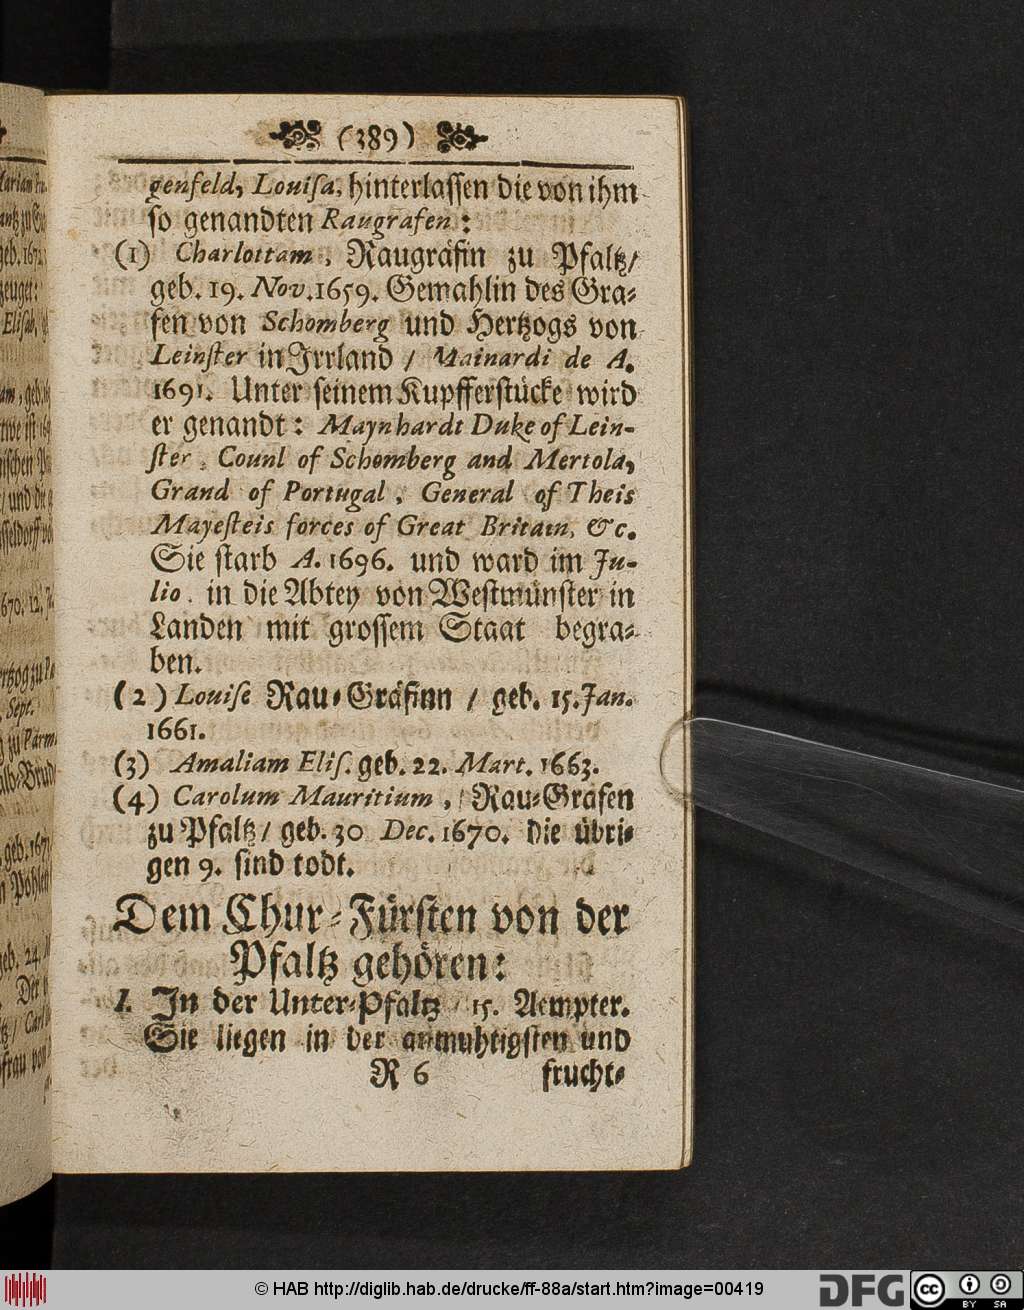 (389)
genfeld, Louiſa, hinterlaſſen die von ihm
ſo genandten Raugrafen:
(1) Charlottam, Raugräfin zu Pfaltz/
geb. 19. Nov. 1659. Gemahlin des Gra-
fen von Schomberg und Hertzogs von
Leinſter in Irrland / Mainardi de A.
1691. Unter ſeinem Kupfferſtücke wird
er genandt: Maynhardt Duke of Lein-
ſter, Counl of Schomberg and Mertola,
Grand of Portugal, General of Theis
Mayeſteis forces of Great Britain, &c.
Sie ſtarb A. 1696. und ward im Ju-
lio. in die Abtey von Weſtmünſter in
Landen mit groſſem Staat begra-
ben.
(2) Louiſe Rau-Gräfinn / geb. 15. Jan.
1661.
(3) Amaliam Eliſ. geb. 22. Mart. 1663.
(4) Carolum Mauritium, Rau-Grafen
zu Pfaltz/ geb. 30 Dec. 1670. die übri-
gen 9. ſind todt.
Dem Chur-Fürſten von der
Pfaltz gehören:
I. In der Unter-Pfaltz 15. Aempter.
Sie liegen in der anmuhtigſten und
R 6 frucht-
© HAB http://diglib.hab.de/drucke/ff-88a/start.htm?image=00419
DFG
cc
BY SA